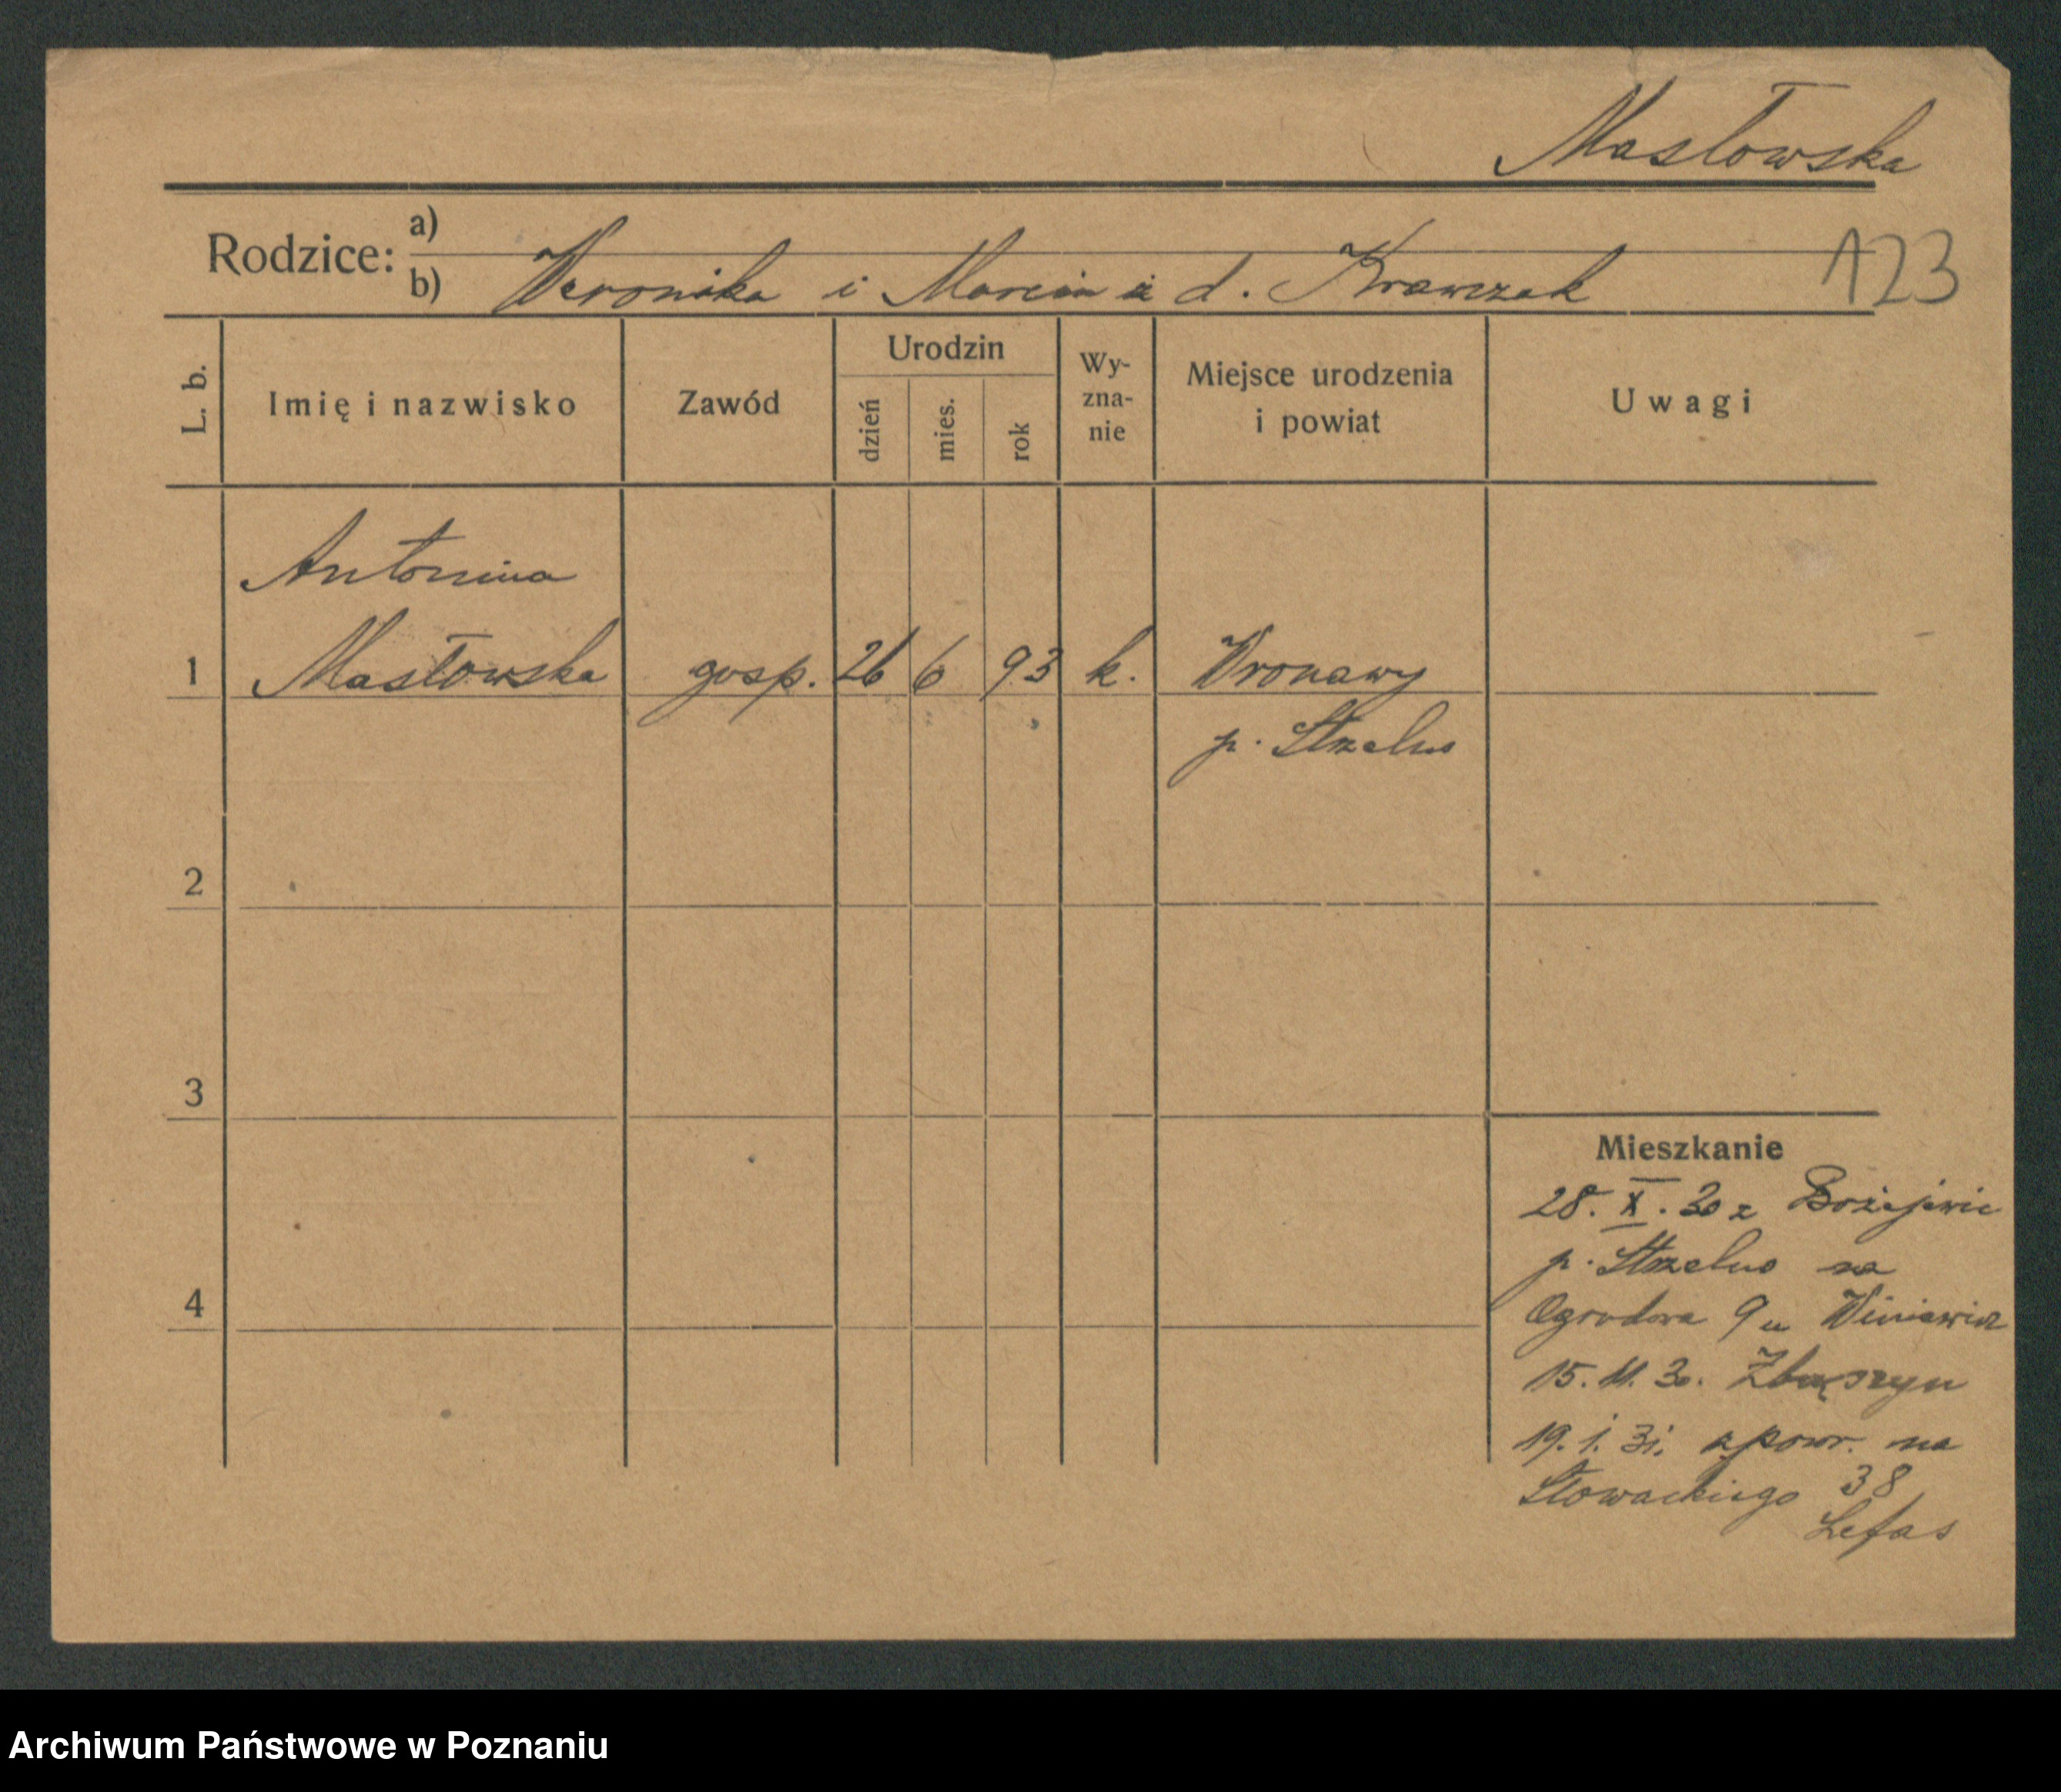 Masłowska
Rodzice: a)
b) Weronika i Marcin z d. Krawczak
123
L. b.
Imię i nazwisko
Zawód
Urodzin
dzień
mies.
rok
Wy-
zna-
nie
Miejsce urodzenia
i powiat
Uwagi
Antonina
1 Masłowska gosp. 26 6 93 k. Wronawy
p. Strzelno
2
3
Mieszkanie
28. X. 30 z Bożejewic
p. Strzelno na
4
Ogrodowa 9 u
15. 11. 30. Zbąszyn
19. 1. 31. z powr. na
Słowackiego 38
Lefas
Archiwum Państwowe w Poznaniu